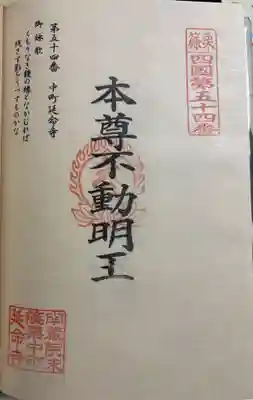 四國第五十四番
本尊不動明王
第五十四番　中町延命寺
御詠歌
くもりなき鏡の縁とながむれば
残さず影をうつすものかな
南蔵院末
篠栗中町
延命寺